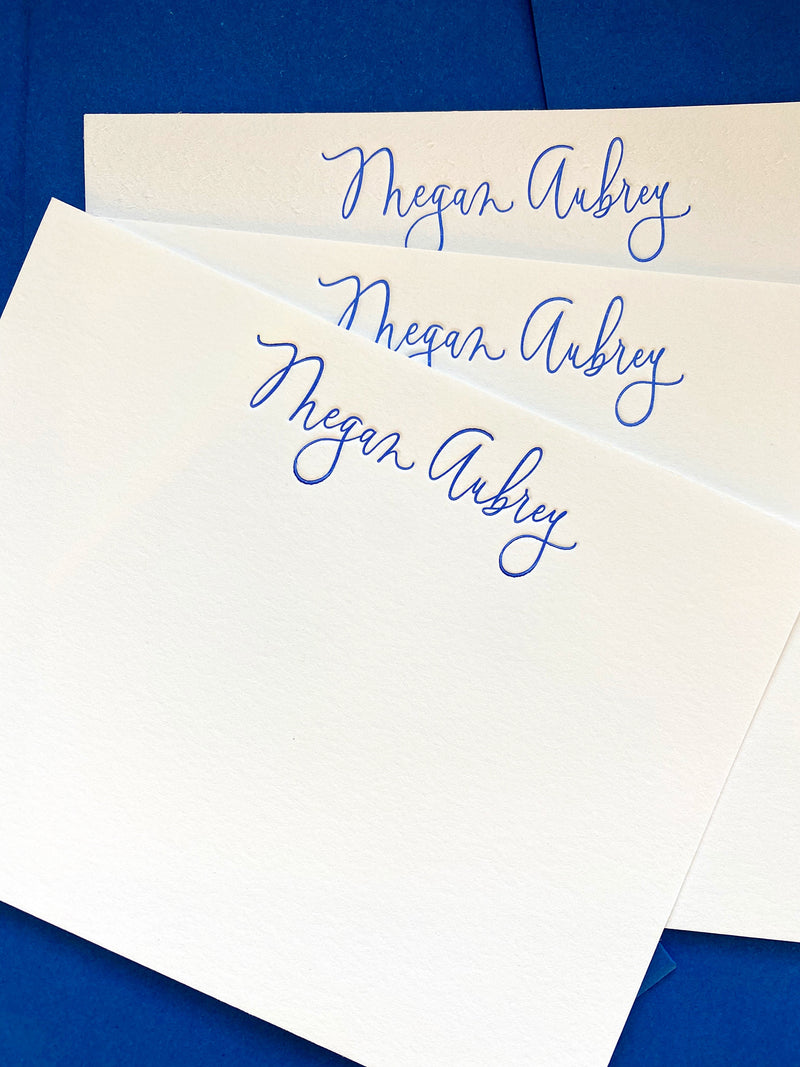 Megan Aubrey
Megan Aubrey
Megan Aubrey